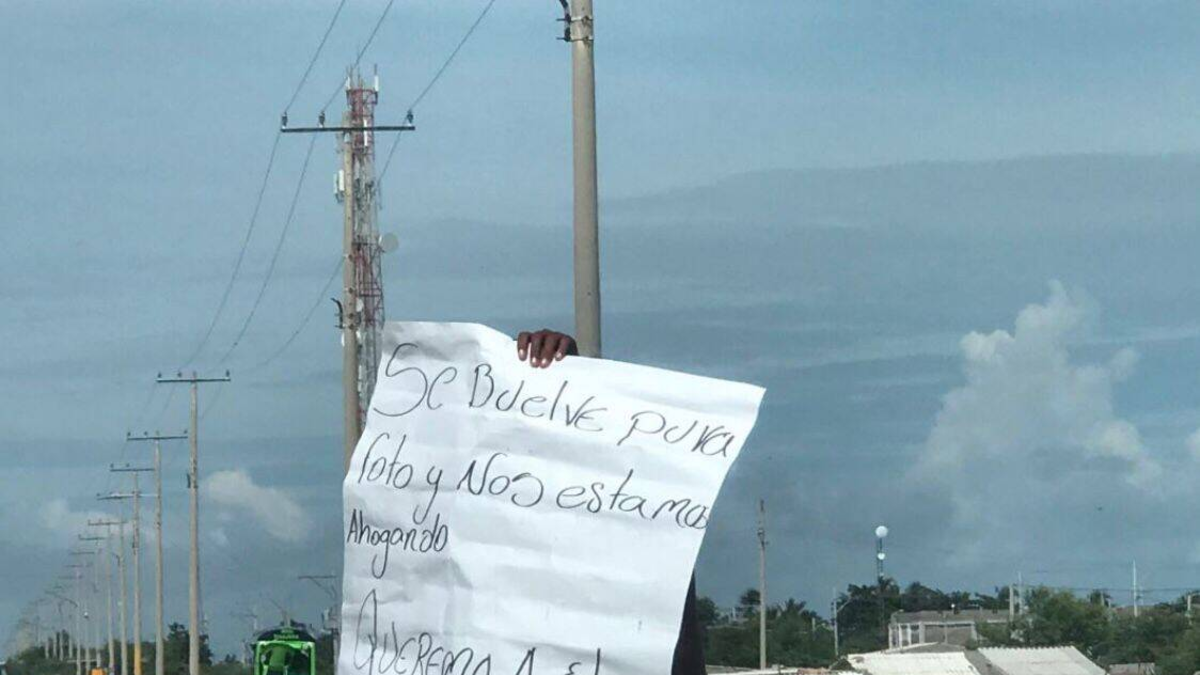 Se Buelve pura
foto y Nos estamos
Ahogando
Queremo A El